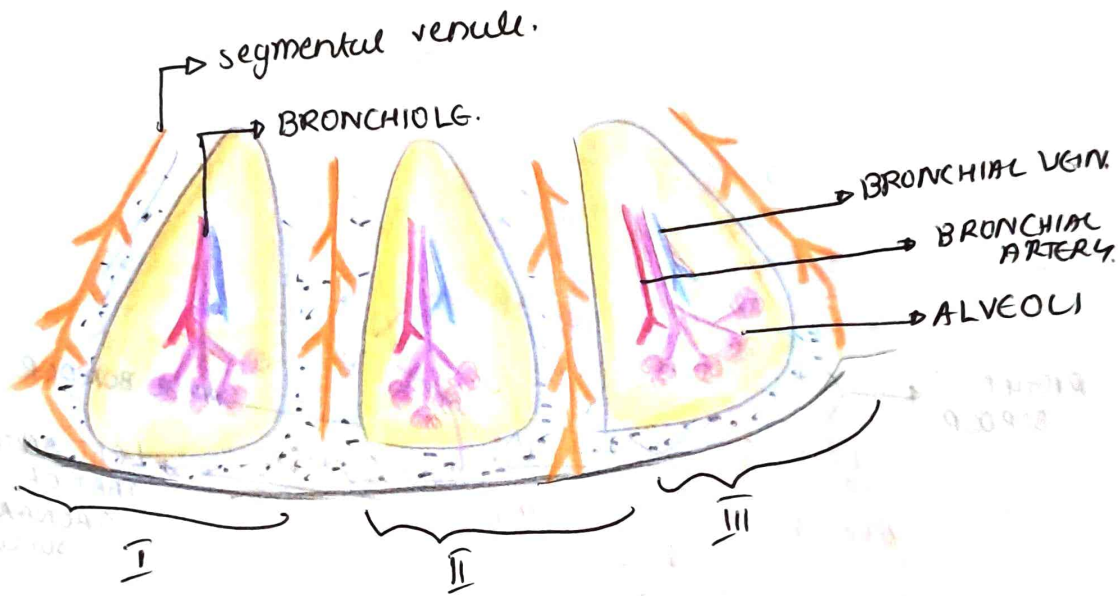 segmental venule.
BRONCHIOLE.
BRONCHIAL VEIN.
BRONCHIAL
ARTERY.
ALVEOLI
I
II
III